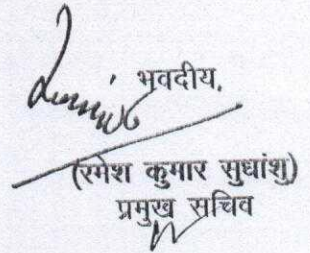 भवदीय,
(रमेश कुमार सुधांशु)
प्रमुख सचिव